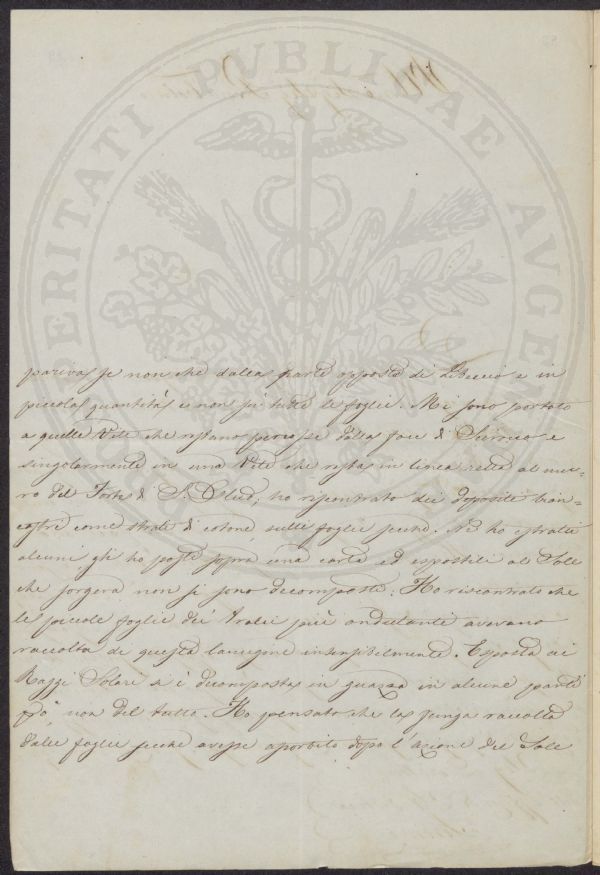 PROSPERITATI PVBLICAE AVGENDAE
pariva se non che dalla parte opposta di Libeccio e in
piccola quantità e non su tutte le foglie. Mi sono portato
a quelle Vite che restano percosse dalla foce di Scirocco e
singolarmente in una Vite che resta in linea retta al mu=
ro del Forte di S. ho riscontrato dei depositi bian=
castri come strati di cotone sulle foglie secche. Ne ho estratti
alcuni, gli ho posti sopra una carta ed espostili al Sole
che sorgeva non si sono decomposti. Ho riscontrato che
le piccole foglie dei tralci più ondulanti avevano
raccolta di questa lanugine insensibilmente. Esposta ai
Raggi Solari si è decomposta in guazza in alcune parti
però, non del tutto. Ho pensato che la funga raccolta
dalle foglie secche avesse assorbito dopo l'azione del Sole